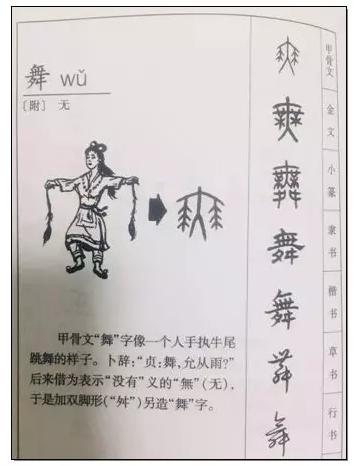 舞 wǔ
〔附〕 无
甲骨文“舞”字像一个人手执牛尾
跳舞的样子。卜辞:“贞:舞,允从雨?”
后来借为表示“没有”义的“無”(无),
于是加双脚形(“舛”)另造“舞”字。
甲骨文
金文
小篆
隶书
楷书
草书
行书
舞
舞
舞